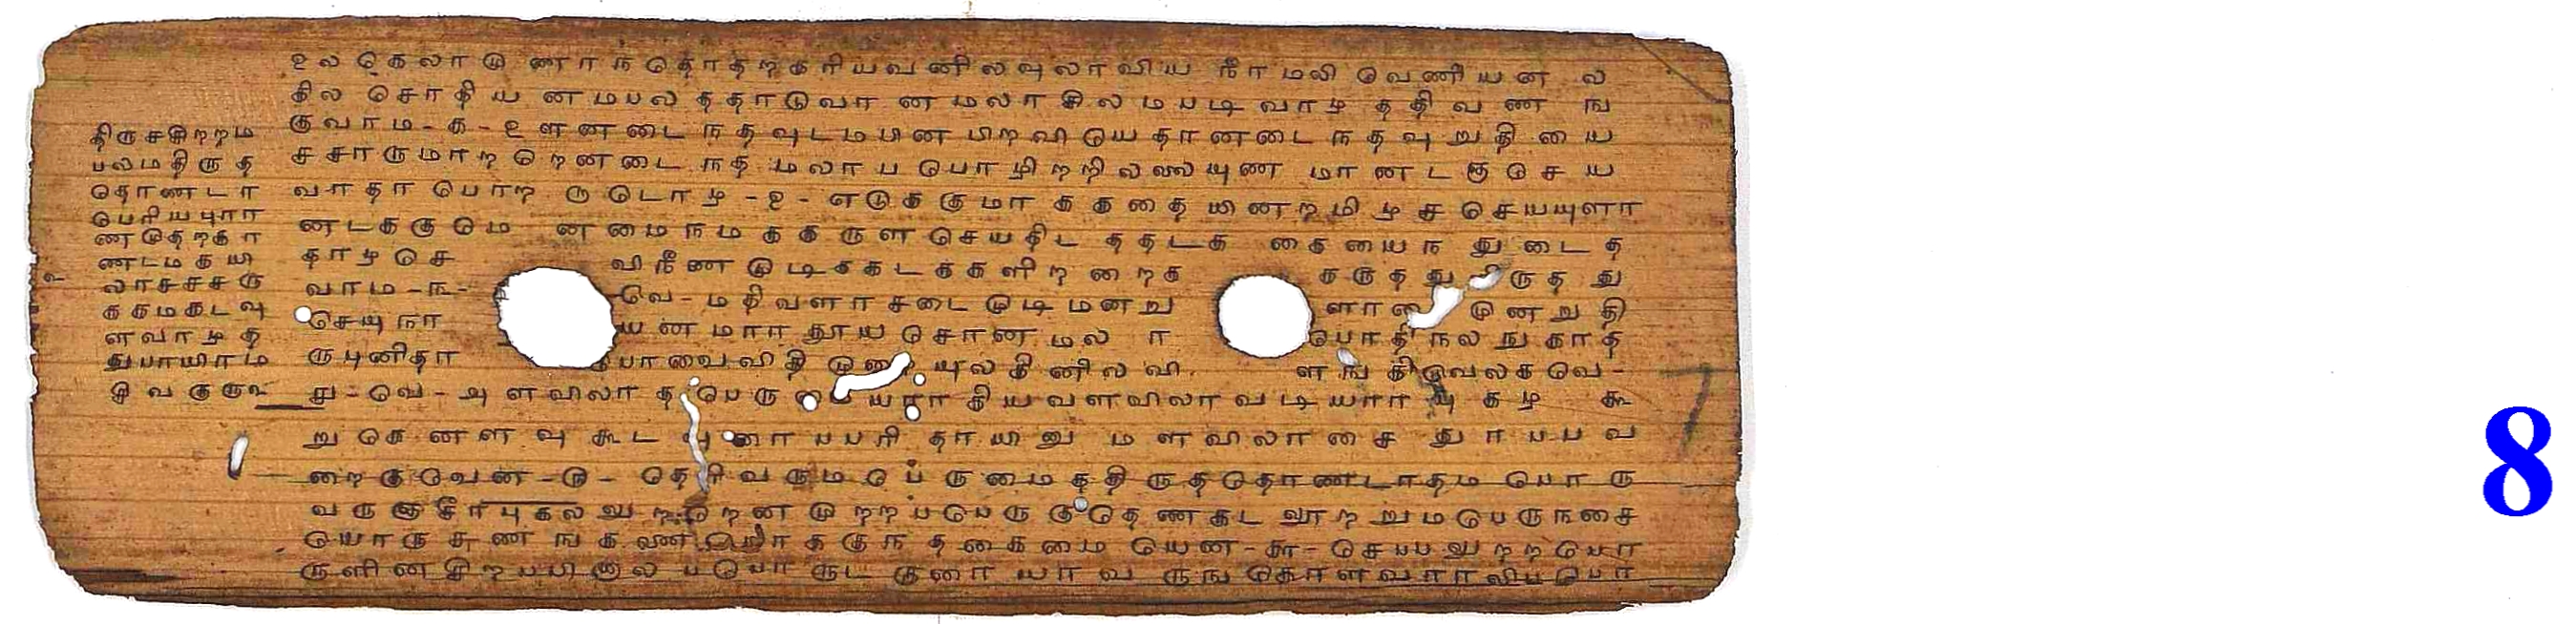 திருசசிறறம
பலமதிருத
தொணடா
பெரியபுரா
ணமுதறகா
ணடமகயி
லாசசசரு
ககமகடவு
ளவாழத
துபாயிரம
சிவகுரு
உலகெலாமுணாநதோதறகரியவனிலவுலாவியநீாமலிவேணியனல
கிலசோதியனமபலததாடுவானமலாசிலமபடிவாழததிவணங
குவாம-க-உளனடைநதவுடமபினபிறவியேதானடைநதவுறுதியை
சசாருமாறறெனடைநதமலாபபொழிறறிலலையுணமானடஞசெய
வாதாபொறருடொழ-உ-எடுககுமாககதையினறமிழசசெயயுளா
னடககுமெனமைநமககருளசெயதிடததடககையைநதுடைத
தாழசெவிநீணமுடிககடககளிறறைககருததுளிருதது
வாம-ங-வே-மதிவளாசடைமுடிமனறுளாரைமுனறுதி
செயுநாயனமாாதூயசொனமலாபபொதிநலஙகாத
ருபுனிதாபேரவைவிதிமுறையுலகினிலவிளஙகிவெலகவே-
ச-வே-அளவிலாதபெருமையராகியவளவிலாவடியாாபுகழகூ
றுகெனளவுகூடவுரையபபரிதாயினுமளவிலாசைதுரபபவ
றைகுவேன-ரு-தெரிவருமபெருமைததிருததொணடாதமபொரு
வருஞசீாபுகலலுறறெனமுறறபபெருகுதெணகடலூறறுமபெருநசை
யொருசுணஙகனையொககுநதகைமையேன-சா-செபபலுறறபொ
ருளினசிறபபினாலபபொருடகுரையாவருஙகொளவராலிபபொ